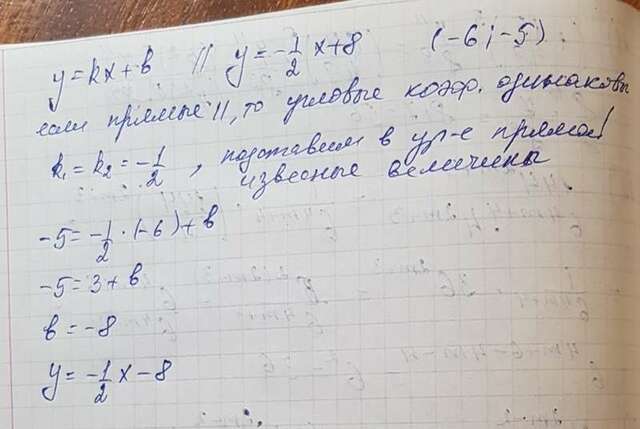 y = kx + b // y = -1/2 x + 8 (-6; -5)
если прямые ||, то угловые коэф. одинаковы
k₁ = k₂ = -1/2, подставим в ур-е прямой
извесные величины
-5 = -1/2 · (-6) + b
-5 = 3 + b
b = -8
y = -1/2 x - 8